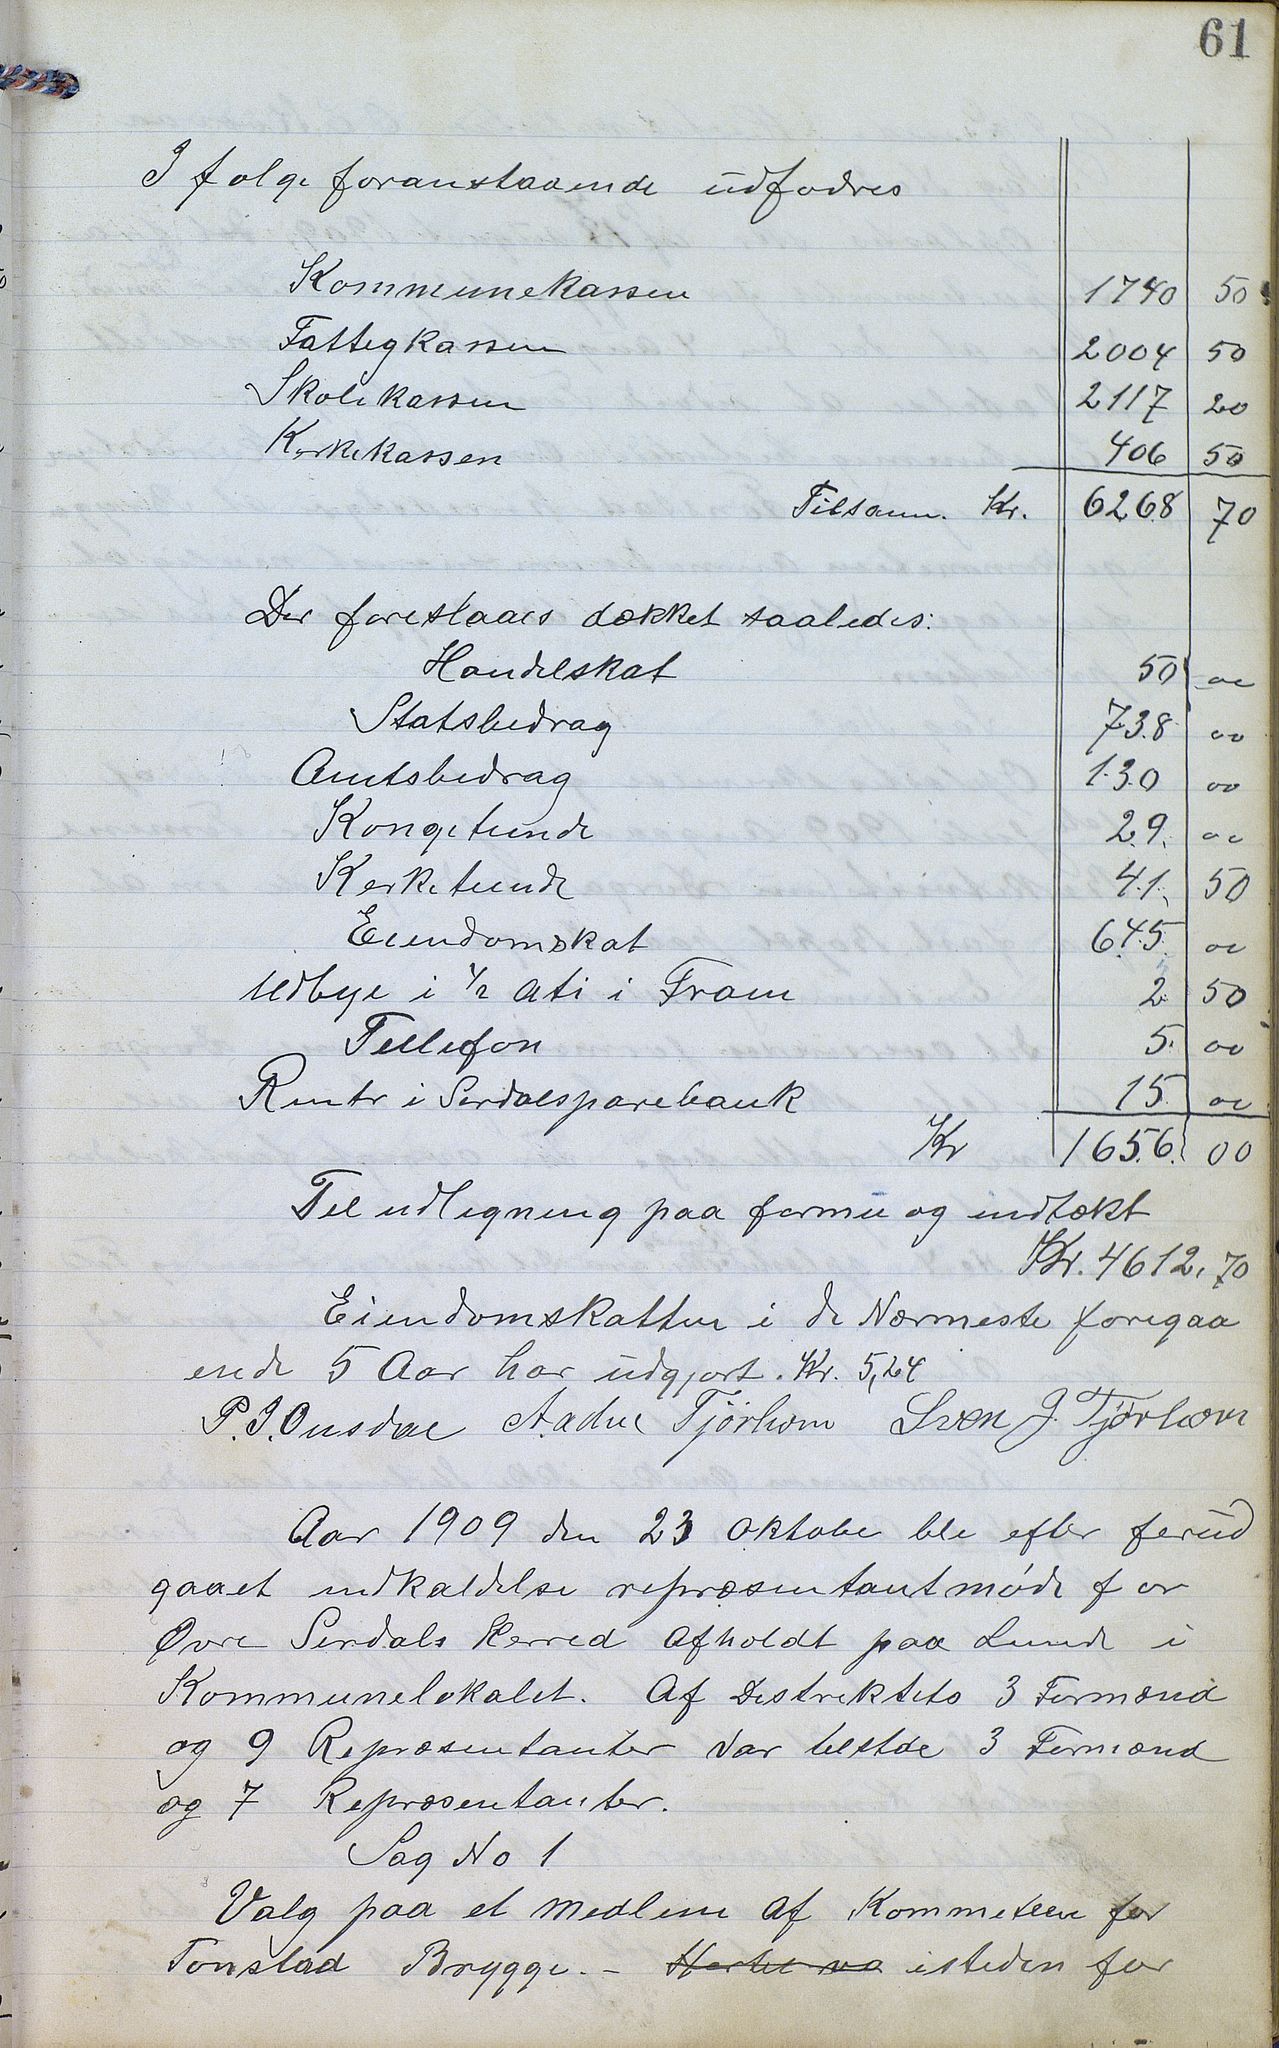 61
I følge foranstaaende udfodres
Kommunekassen 1740 50
Fattegkassen 2004 50
Skolekassen 2117 20
Kerkekassen 406 50
Tilsam. Kr. 6268 70
Der foreslaaes dækket saaledes:
Handelskat 50 00
Statsbedrag 738 00
Amtsbedrag 130 00
Kongetiende 29 00
Kerketiende 41 50
Eiendomskat 645 00
Udbye i 1/2 Ati i Fram 2 50
Tellefon 5 00
Renter i Serdalsparebank 15 00
Kr 1656 00
Til udligning paa formue og indtækt
Kr. 4612,70
Eiendomskatten i de Nærmeste foregaa
ende 5 Aar har udgjort. Kr. 5,24
P. J. Ousdal Aadne Tjørhom Sven J. Tjørhom
Aar 1909 den 23 oktobe ble efter forud
gaaet indkaldelse repræsentantmøde for
Øvre Serdals Herred afholdt paa Lunde i
Kommunelokalet. Af Destrektets 3 Formænd
og 9 Repræsentanter var telstde 3 Formænd
og 7 Repræsentanter.
Sag No 1
Valg paa et medlem af Kommeteen for
Tonstad Brygge. - isteden for